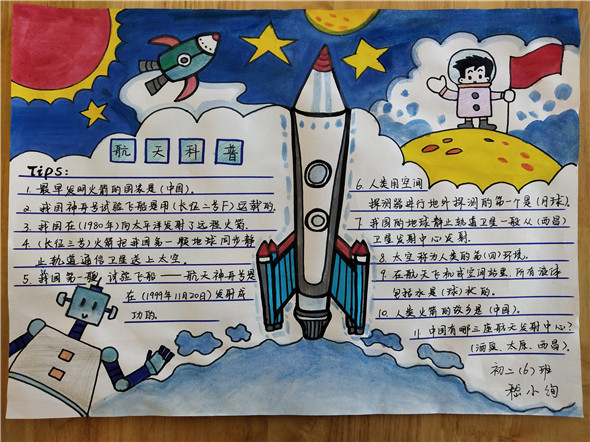 航天科普
Tips:
1. 最早发明火箭的国家是(中国).
2. 我国神舟号试验飞船是用(长征二号F)运载的.
3. 我国在(1980年)向太平洋发射了远程火箭.
4. (长征三号)火箭把我国第一颗地球同步静
止轨道通信卫星送上太空.
5. 我国第一艘试验飞船——航天神舟号是
在(1999年11月20日)发射成
功的.
6. 人类用空间
探测器进行地外探测的第一个是(月球).
7. 我国的地球静止轨道卫星一般从(西昌)
卫星发射中心发射.
8. 太空称为人类的第(四)环境.
9. 在航天飞机或空间站里,所有液体
包括水是(球)状的.
10. 人类火箭的故乡是(中国).
11. 中国有哪三座航天发射中心?
(酒泉、太原、西昌).
初二(6)班
嵇小绚